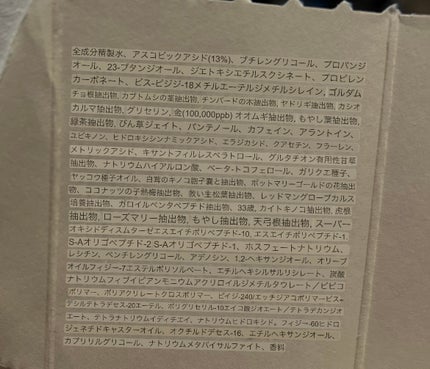 全成分精製水、アスコビックアシド(13%)、ブチレングリコール、プロパンジ
オール、23-ブタンジオール、ジエトキシエチルスクシネート、プロピレン
カーボネート、ビス-ビジジ-18メチルエーテルジメチルシレイン、ゴルダム
チョ根抽出物、カブトムシの茎抽出物、チンバードの木抽出物、ヤドリギ抽出物、カシオ
カルマ蛍抽出物、グリセリン、金(100,000ppb) オオムギ抽出物、もやし葉抽出物、
緑茶抽出物、びん草シエイト、パンテノール、カフェイン、アラントイン、
ユビキノン、ヒドロキシシンナミックアシド、エラジカシド、クアセチン、フラーレン、
メトリックアシド、キサントフィルレスベラトロール、グルタチオン有用性甘草
抽出物、ナトリウムハイアルロン酸、ベータ-トコフェロール、ガリクエ種子、
ヤッコウ種子オイル、白茸のキノコ胞子嚢と抽出物、ポットマリーゴールドの花抽出
物、ココナッツの子熱梅抽出物、救い主松葉抽出物、レッドマングローブカルス
培養抽出物、ガロイルペンタペプチド抽出物、33歳、カイトキノコ抽出物、虎根
抽出物、ローズマリー抽出物、もやし抽出物、天弓根抽出物、スーパー
オキシドディスムターゼエスエイチポリペプチド-10、エスエイチポリペプチド-
1、S-Aオリゴペプチド-2 S-Aオリゴペプチド-1、ホスフェートナトリウム、
レシチン、ペンチレングリコール、アデノシン、1,2ヘキサンジオール、オリーブ
オイルフィジー-7エステルポリソルベート、エチルヘキシルサリリシレート、炭酸
ナトリウムフィブイピアンモニウムアクリロイルジメチルタウレート/ビピコ
ポリマー、ポリアクリレートクロスポリマー、ピイジ-240/エッチジアコポリマービス+
デシルテトラデセス-20エーテル、ポリグリセリル-10エイコ酸ジオエート/テトラデカンジオ
エート、テトラナトリウムイディチエイ、ナトリウムヒドロキシド。フィジー-60ヒドロ
ジェネチドキャスターオイル、オクチルドデセス-16、エチルヘキサンジオール、
カプリリルグリコール、ナトリウムメタバイサルファイト、香料